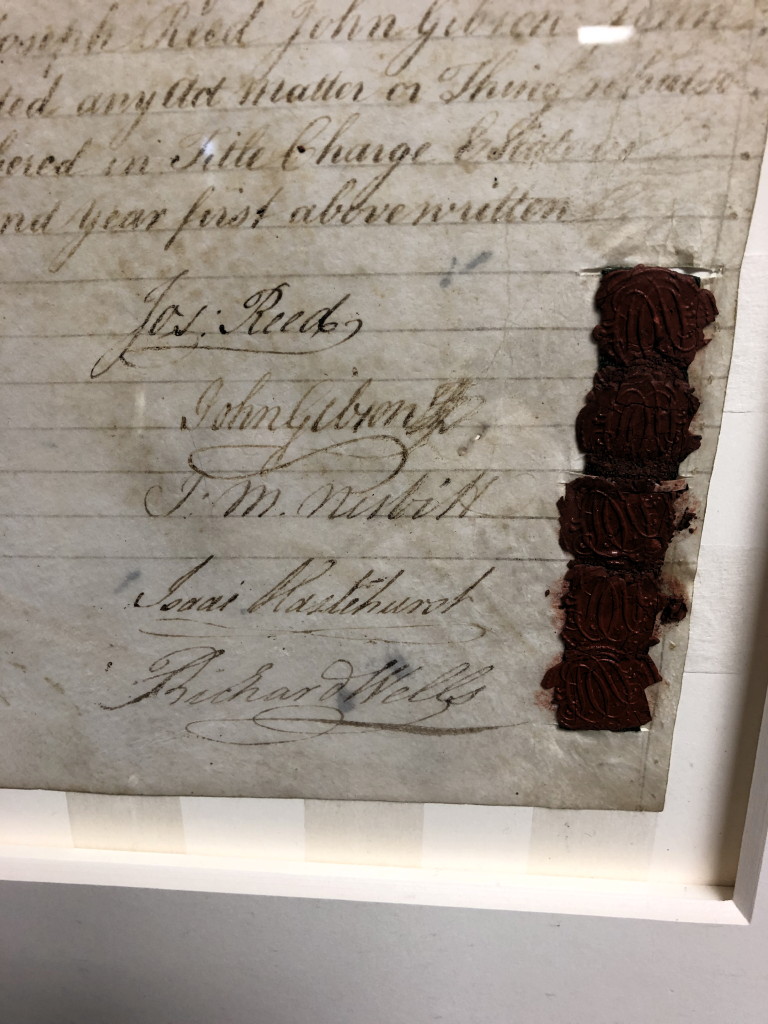 Joseph Reed John Gibson
ted any Act Matter or Thing
bered in Title Charge Estate or
nd Year first above written
Jos: Reed
John Gibson
J. M. Nesbitt
Isaac Hazlehurst
Richard Wells